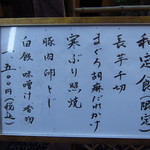 和定食(限定)
長芋千切
まぐろ胡麻だれかけ
寒ぶり照焼
豚肉卵とじ
白飯 味噌汁 香物
一、五〇〇円(税込)